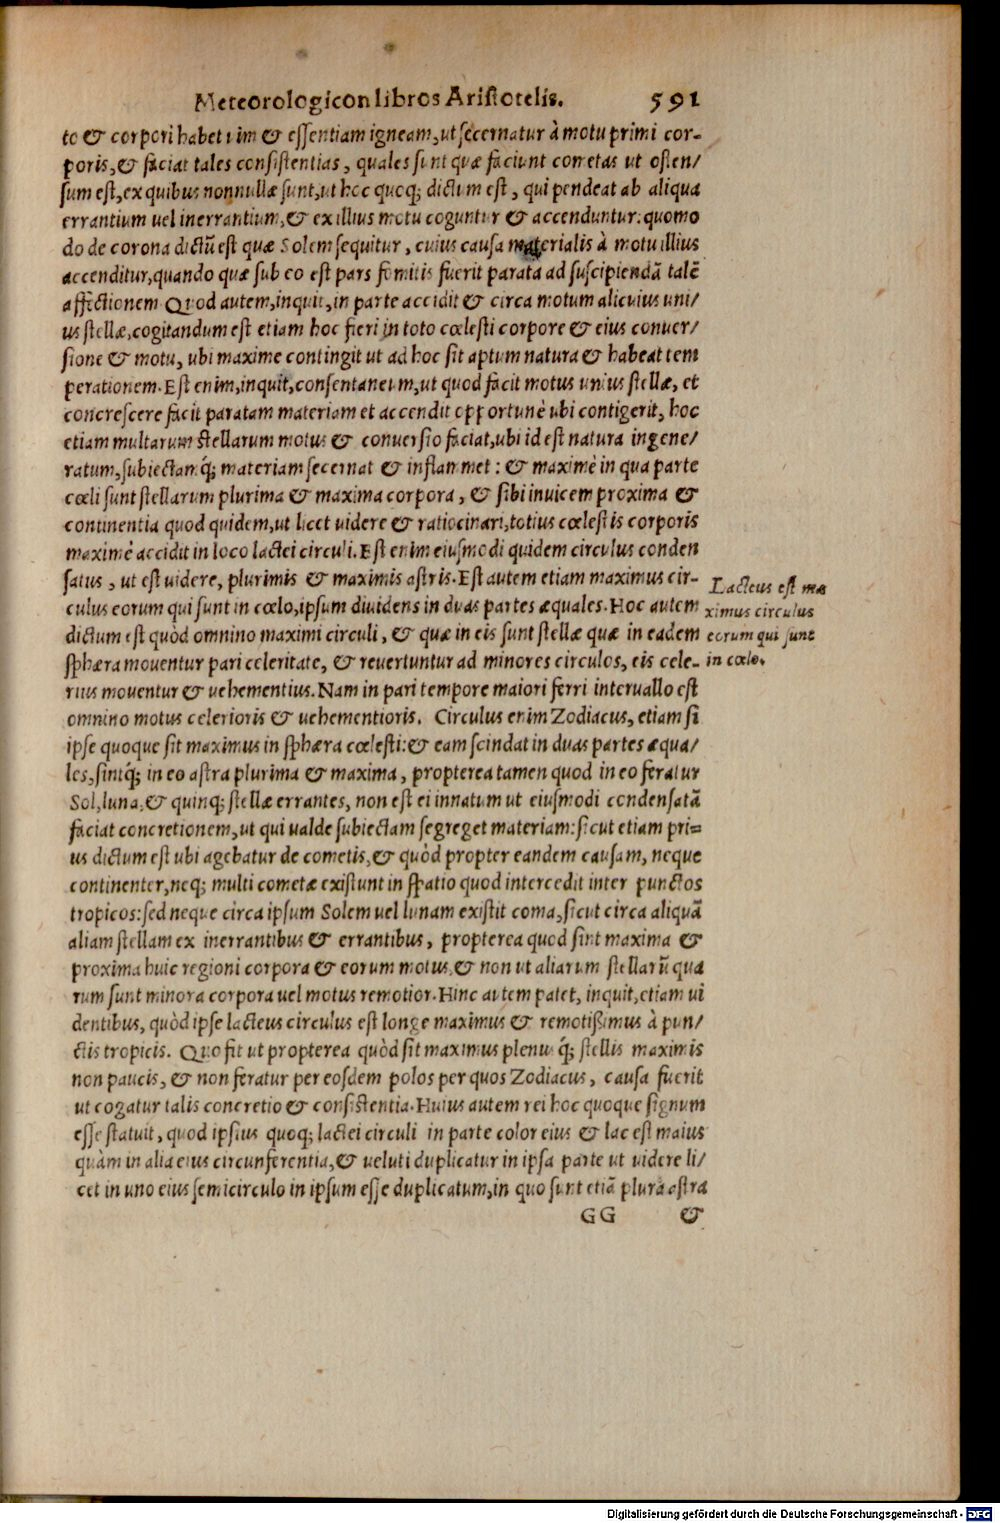 Meteorologicon libros Aristotelis. 591
te & corpori habet uim & essentiam igneam, ut secernatur à motu primi cor-
poris, & faciat tales consistentias, quales sunt quæ faciunt cometas ut osten/
sum est, ex quibus nonnullæ sunt, ut hoc quoq; dictum est, qui pendeat ab aliqua
errantium uel inerrantium, & ex illius motu coguntur & accenduntur: quomo
do de corona dictũ est quæ Solem sequitur, cuius causa materialis à motu illius
accenditur, quando quæ sub eo est pars fomitis fuerit parata ad suscipiendã talẽ
affectionem Quod autem, inquit, in parte accidit & circa motum alicuius uni/
us stellæ, cogitandum est etiam hoc fieri in toto cœlesti corpore & eius conuer/
sione & motu, ubi maxime contingit ut ad hoc sit aptum natura & habeat tem
perationem. Est enim, inquit, consentaneum, ut quod facit motus unius stellæ, et
concrescere facit paratam materiam et accendit opportunè ubi contigerit, hoc
etiam multarum stellarum motus & conuersio faciat, ubi id est natura ingene/
ratum, subiectamq́; materiam secernat & inflammet: & maximè in qua parte
cœli sunt stellarum plurima & maxima corpora, & sibi inuicem proxima &
continentia quod quidem, ut licet uidere & ratiocinari, totius cœlestis corporis
maximè accidit in loco lactei circuli. Est enim eiusmodi quidem circulus conden
satus, ut est uidere, plurimis & maximis astris. Est autem etiam maximus cir-
culus eorum qui sunt in cœlo, ipsum diuidens in duas partes æquales. Hoc autem
dictum est quòd omnino maximi circuli, & quæ in eis sunt stellæ quæ in eadem
sphæra mouentur pari celeritate, & reuertuntur ad minores circulos, eis cele-
rius mouentur & uehementius. Nam in pari tempore maiori ferri interuallo est
omnino motus celerioris & uehementioris. Circulus enim Zodiacus, etiam si
ipse quoque sit maximus in sphæra cœlesti: & eam scindat in duas partes æqua/
les, sintq́; in eo astra plurima & maxima, propterea tamen quod in eo feratur
Sol, luna, & quinq; stellæ errantes, non est ei innatum ut eiusmodi condensatã
faciat concretionem, ut qui ualde subiectam segreget materiam: sicut etiam pri=
us dictum est ubi agebatur de cometis, & quòd propter eandem causam, neque
continenter, neq; multi cometæ existunt in spatio quod intercedit inter punctos
tropicos: sed neque circa ipsum Solem uel lunam existit coma, sicut circa aliquã
aliam stellam ex inerrantibus & errantibus, propterea quod sint maxima &
proxima huic regioni corpora & eorum motus, & non ut aliarum stellarũ qua
rum sunt minora corpora uel motus remotior. Hinc autem patet, inquit, etiam ui
dentibus, quòd ipse lacteus circulus est longe maximus & remotissimus à pun/
ctis tropicis. Quo fit ut propterea quòd sit maximus plenusq́; stellis maximis
non paucis, & non feratur per eosdem polos per quos Zodiacus, causa fuerit
ut cogatur talis concretio & consistentia. Huius autem rei hoc quoque signum
esse statuit, quod ipsius quoq; lactei circuli in parte color eius & lac est maius
quàm in alia eius circunferentia, & ueluti duplicatur in ipsa parte ut uidere li/
cet in uno eius semicirculo in ipsum esse duplicatum, in quo sunt etiã plura astra
GG &
Lacteus est ma
ximus circulus
eorum qui sunt
in cœlo.
Digitalisierung gefördert durch die Deutsche Forschungsgemeinschaft - DFG